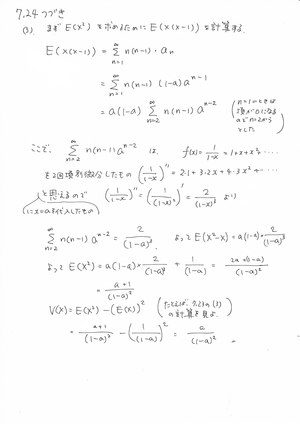 7.24 つづき
(3). まず E(X²) を求めるために E(X(X-1)) を計算する.
E(X(X-1)) = Σ_{n=1}^{∞} n(n-1)・a_n
= Σ_{n=1}^{∞} n(n-1) (1-a) a^{n-1}
= a(1-a) Σ_{n=2}^{∞} n(n-1) a^{n-2} (n=1のときは 項が0になる ので n=2から とした)
ここで, Σ_{n=2}^{∞} n(n-1) a^{n-2} は, f(x) = 1/(1-x) = 1+x+x²+……
を2回項別微分したもの (1/(1-x))'' = 2・1+3・2x+4・3x²+……
と思えるので (1/(1-x))'' = (1/(1-x)²)' = 2/(1-x)³ より
(に x=a を代入したもの)
Σ_{n=2}^{∞} n(n-1) a^{n-2} = 2/(1-a)³ よって E(X²-X) = a(1-a)・2/(1-a)³
よって E(X²) = a(1-a)・2/(1-a)³ + 1/(1-a) = (2a+(1-a))/(1-a)²
= (a+1)/(1-a)²
V(X) = E(X²) - (E(X))² (7.23の(3) の計算を見よ.)
= (a+1)/(1-a)² - (1/(1-a))² = a/(1-a)² 。